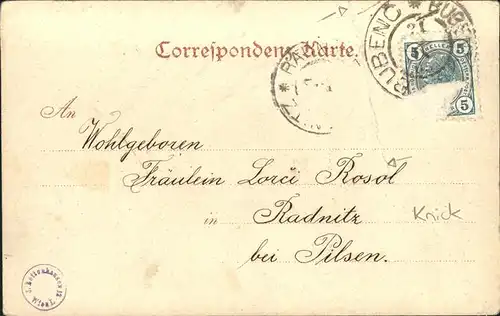 Correspondenz-Karte.
BUBENC * BUBE
5 HELLER 5
5
RAD
NITZ *
An
Wohlgeboren
Fräulein Lorči Rosol
in
Radnitz
Knick
bei Pilsen.